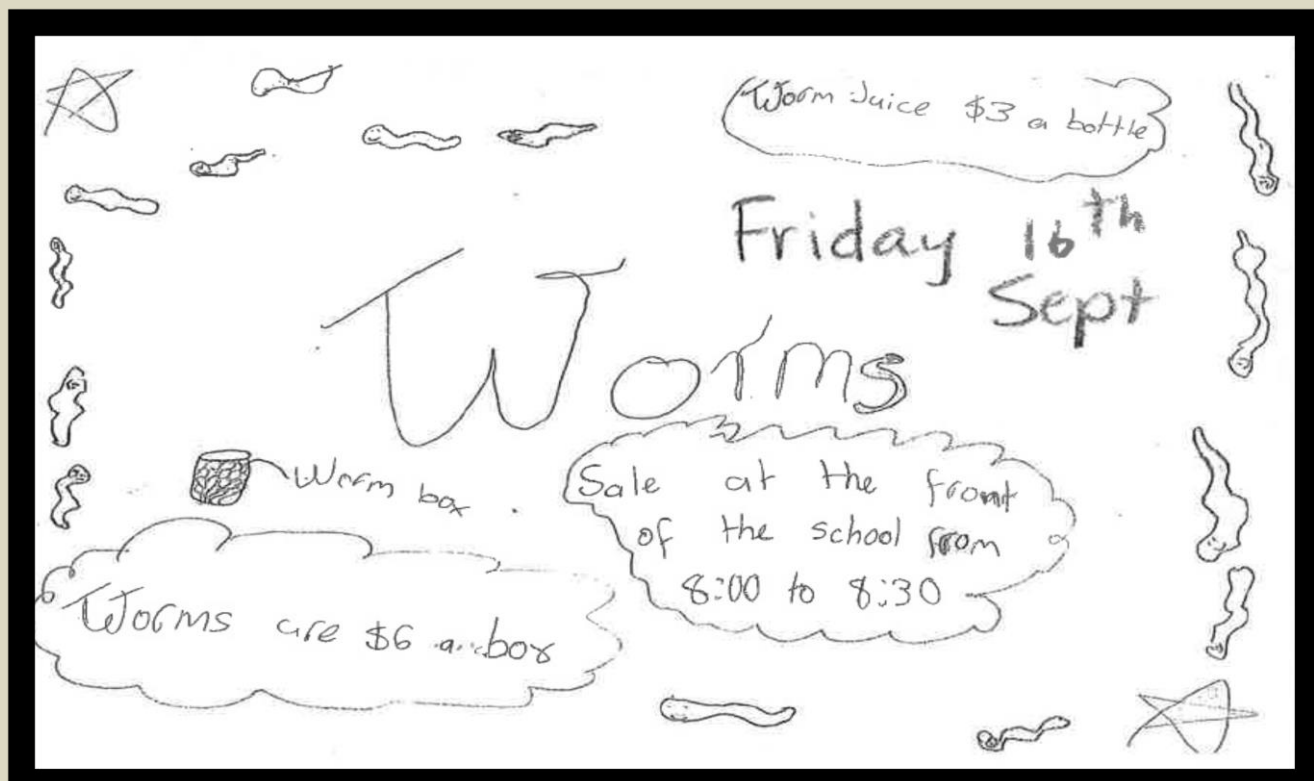 Worm Juice $3 a bottle
Friday 16th
Sept
Worms
Worm box
Sale at the front
of the school from
8:00 to 8:30
Worms are $6 a box